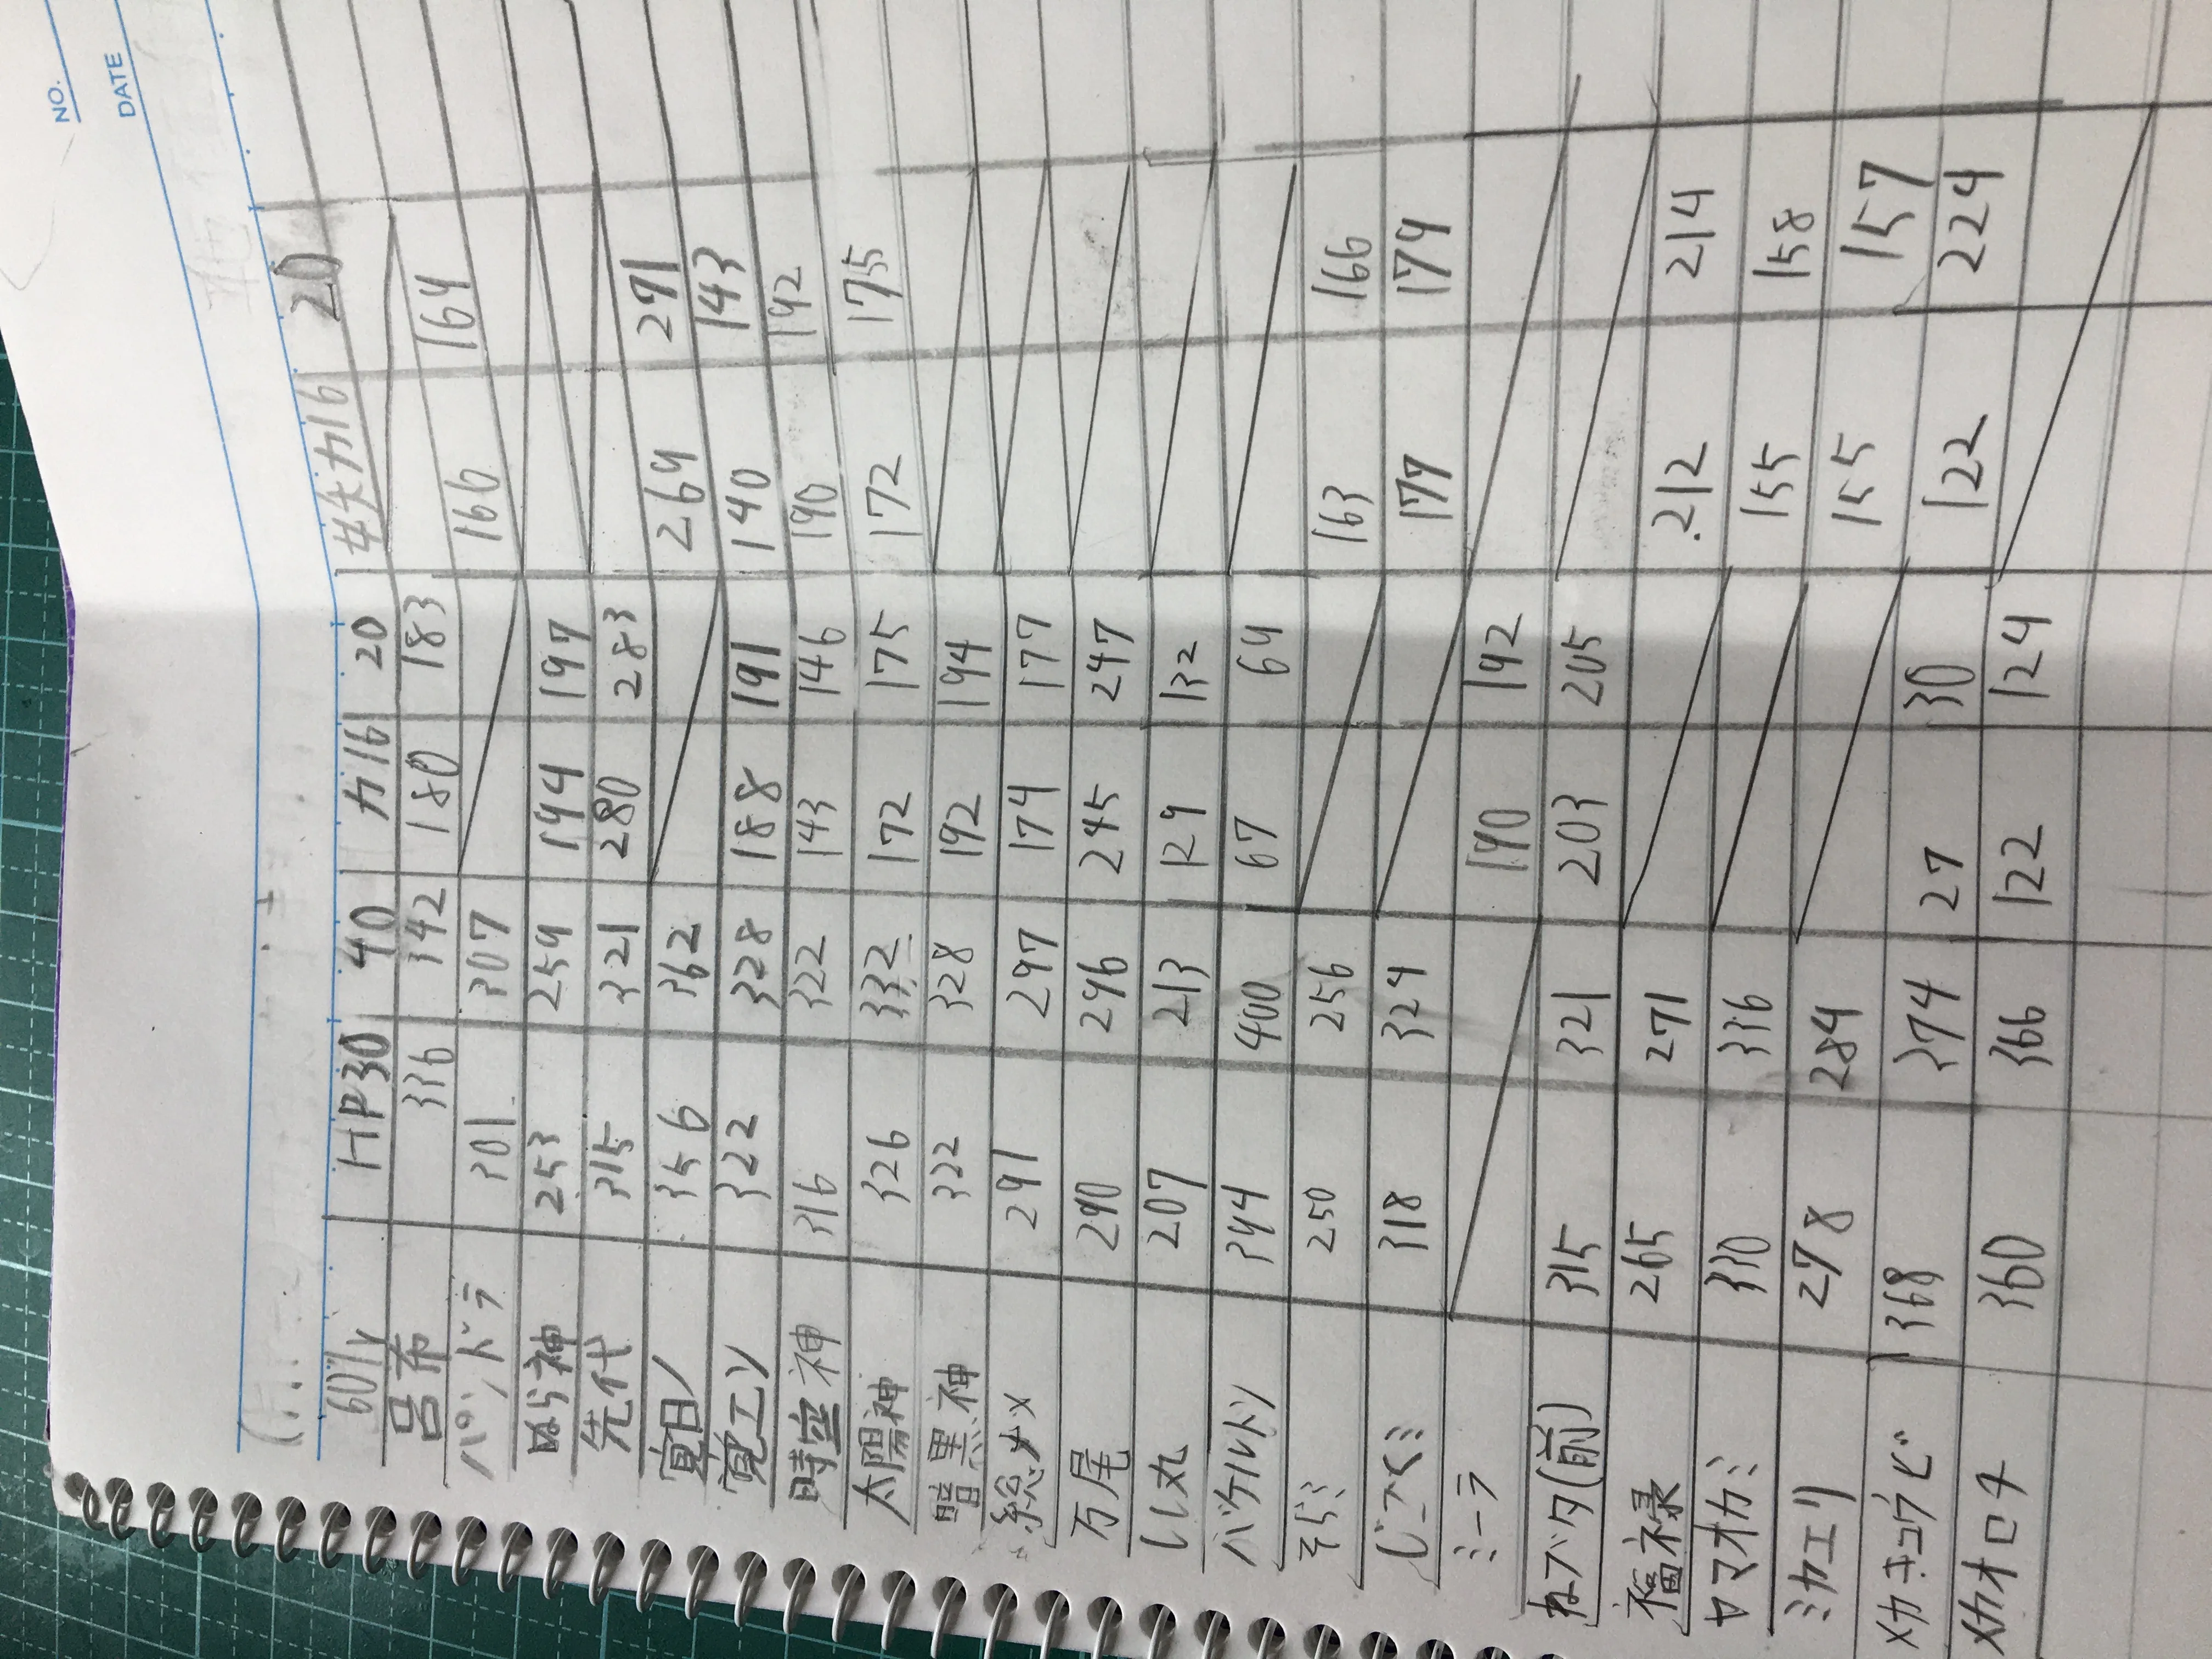 NO.
DATE
60%y HP30 40 力16 20 妖力16 20
呂布 336 342 180 183
パンドラ 301 307 166 164
ぬら神 253 259 194 197
先代 315 321 280 283
寛日ノ 356 362 269 271
寛エン 322 328 188 191 140 143
時空神 316 322 143 146 190 192
太陽神 326 332 172 175 172 175
暗黒神 322 328 192 194
総大メ 291 297 174 177
万尾 290 296 245 247
しし丸 207 213 129 132
バケルトン 394 400 67 64
そらミ 250 256 163 166
じごくミ 318 324 177 179
ミーラ 190 192
ねブタ(前) 315 321 203 205
福禄 265 271 212 214
ヤマオカミ 330 336 155 158
ミカエリ 278 284 155 157
メカキュウビ 368 374 27 30 122 224
メカオロチ 360 366 122 124